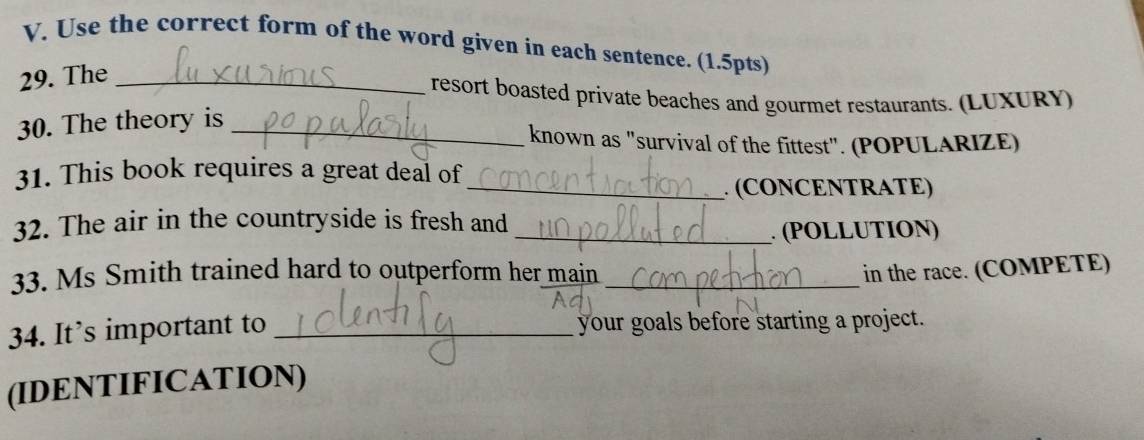 V. Use the correct form of the word given in each sentence. (1.5pts)
29. The luxurious resort boasted private beaches and gourmet restaurants. (LUXURY)
30. The theory is popularly known as "survival of the fittest". (POPULARIZE)
31. This book requires a great deal of concentration. (CONCENTRATE)
32. The air in the countryside is fresh and unpolluted. (POLLUTION)
33. Ms Smith trained hard to outperform her main competition in the race. (COMPETE)
Adj N
34. It's important to identify your goals before starting a project.
(IDENTIFICATION)